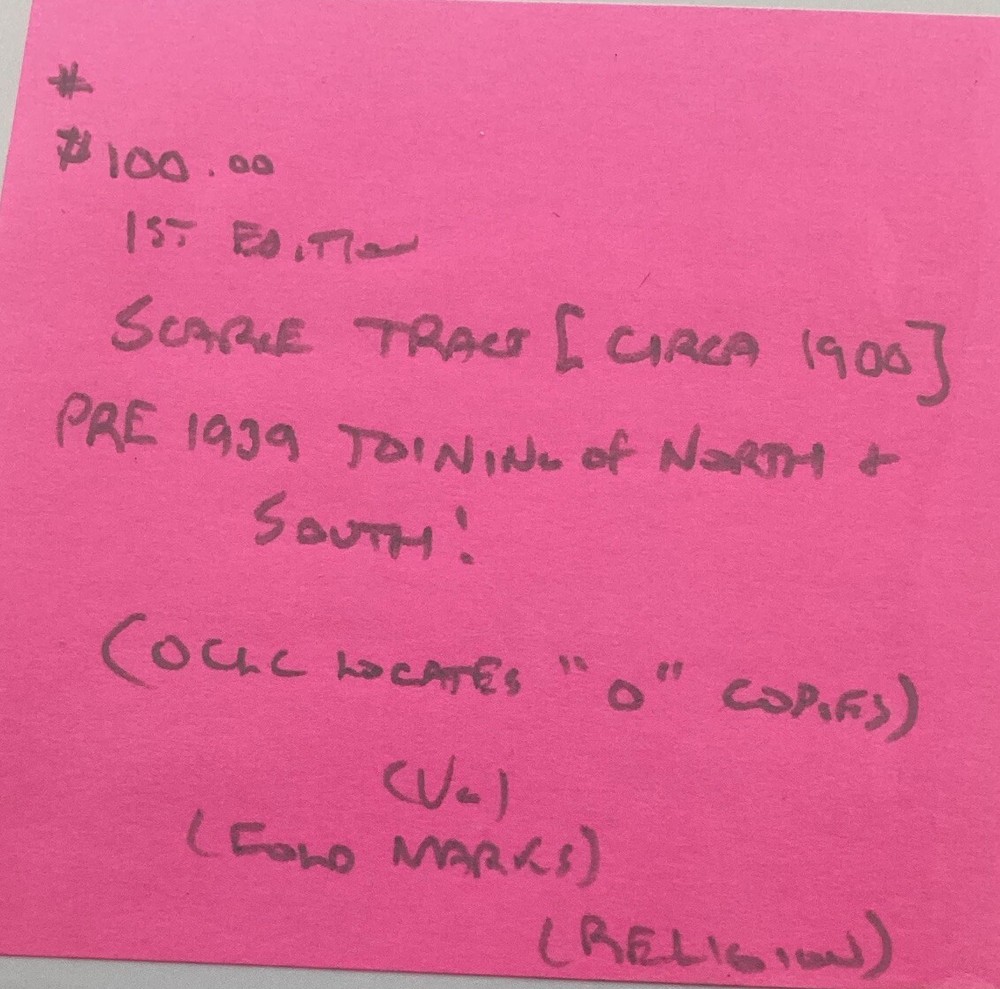 #
$100.00
1ST EDITION
SCARCE TRACT [CIRCA 1900]
PRE 1939 JOINING of NORTH +
SOUTH!
(OCLC LOCATES "0" COPIES)
(VG)
(FOLD MARKS)
(RELIGION)